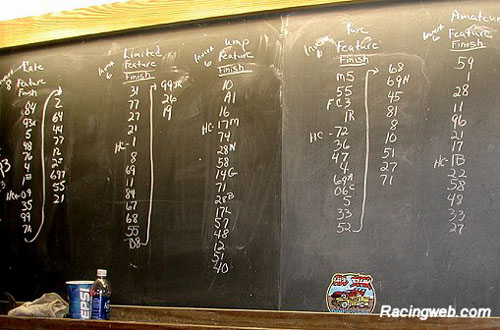 Late
Feature
Finish
84
93x
5
98
76
4
HC-09
35
99
7A
2
64
44
77
12
55
21
Limited
6
Feature
Finish
31
77
27
21
HC-1
8
69
11
89
67
68
55
D8
26
19
ump
6
Feature
Finish
10
A1
16
17M
HC-74
28N
58
14G
71
28B
17L
57
48
12
51
40
Pure
Feature
Finish
m5
55
FC3
1R
HC-72
36
47
4
69A
06c
5
33
52
68
69H
45
81
8
10
51
27
71
Amateur
6
Feature
Finish
59
1
28
11
96
21
17
HC-1B
22
58
48
33
27
PEPSI
Racingweb.com